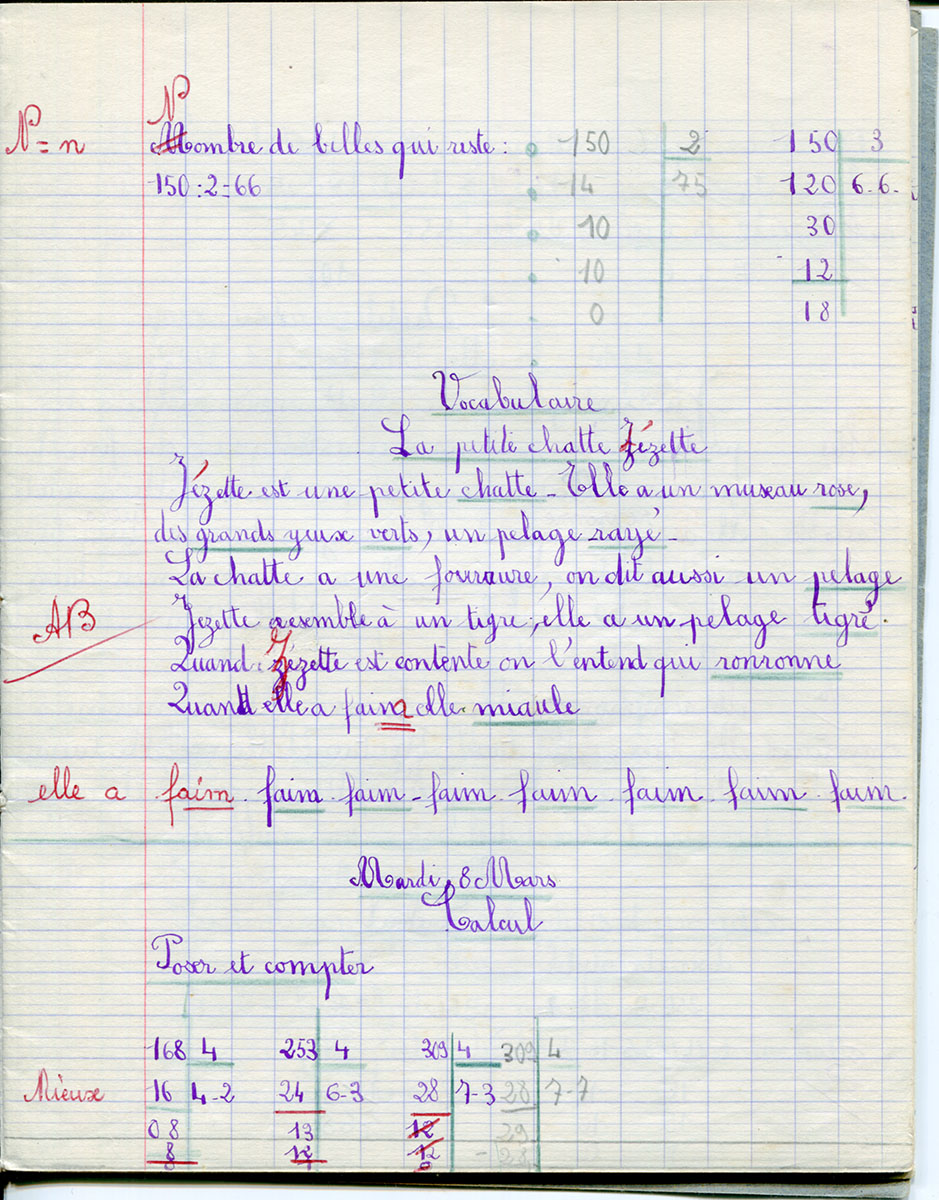 N
N = n Nombre de billes qui reste : 150 2 150 3
150 : 2 = 66 14 75 120 6.6.
10 30
10 12
0 18
Vocabulaire
La petite chatte Zézette
Zézette est une petite chatte - Elle a un museau rose,
des grands yeux verts, un pelage rayé -
La chatte a une fourrure, on dit aussi un pelage
AB Zezette resemble à un tigre, elle a un pelage tigré.
Quand Zézette est contente on l'entend qui ronronne
Quand elle a faim elle miaule
elle a faim. faim faim - faim faim faim. faim faim.
Mardi 8 Mars
Calcul
Poser et compter
168 4 253 4 309 4 309 4
Mieux 16 4-2 24 6-3 28 7-3 28 7-7
08 13 12 29
8 12 12 - 28
1 0